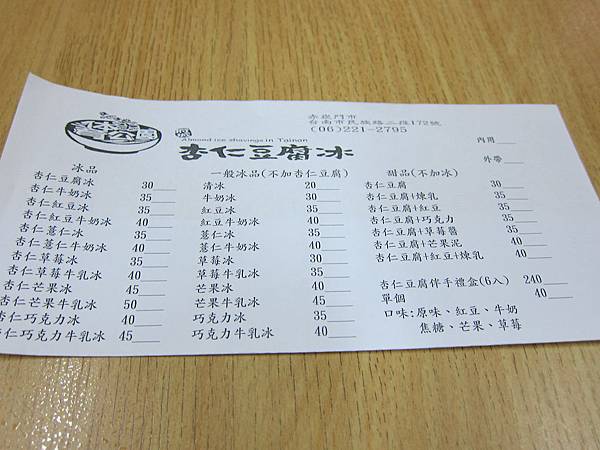 赤崁門市
台南市民族路二段172號
(06)221-2795
Almond ice shavings in Tainan
杏仁豆腐冰
內用___
外帶___
冰品
杏仁豆腐冰 30___
杏仁牛奶冰 35___
杏仁紅豆冰 35___
杏仁紅豆牛奶冰 40___
杏仁薏仁冰 35___
杏仁薏仁牛奶冰 40___
杏仁草莓冰 35___
杏仁草莓牛乳冰 40___
杏仁芒果冰 45___
杏仁芒果牛乳冰 50___
杏仁巧克力冰 40___
杏仁巧克力牛乳冰 45___
一般冰品(不加杏仁豆腐)
清冰 20___
牛奶冰 30___
紅豆冰 35___
紅豆牛奶冰 40___
薏仁冰 35___
薏仁牛奶冰 40___
草莓冰 30___
草莓牛乳冰 35___
芒果冰 40___
芒果牛乳冰 45___
巧克力冰 35___
巧克力牛乳冰 40___
甜品(不加冰)
杏仁豆腐 30___
杏仁豆腐+煉乳 35___
杏仁豆腐+紅豆 35___
杏仁豆腐+巧克力 35___
杏仁豆腐+草莓醬 35___
杏仁豆腐+芒果泥 40___
杏仁豆腐+紅豆+煉乳 40___
杏仁豆腐伴手禮盒(6入) 240___
單個 40___
口味:原味、紅豆、牛奶
焦糖、芒果、草莓